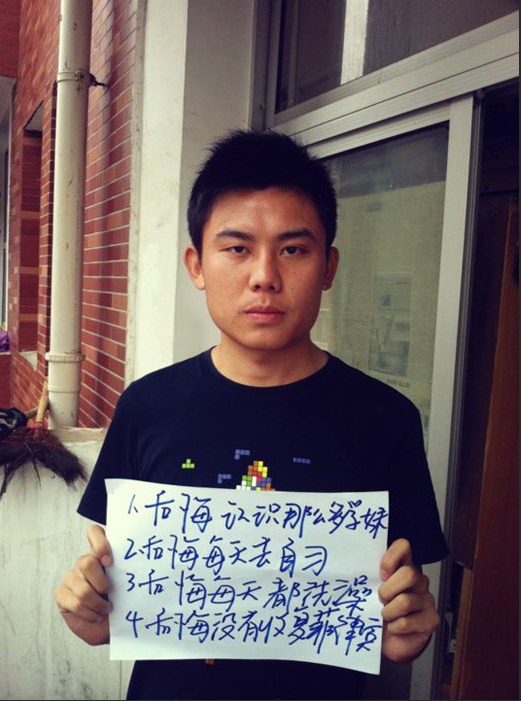 1.后悔认识那么多学妹
2.后悔每天去自习
3.后悔每天都洗澡
4.后悔没有仅是